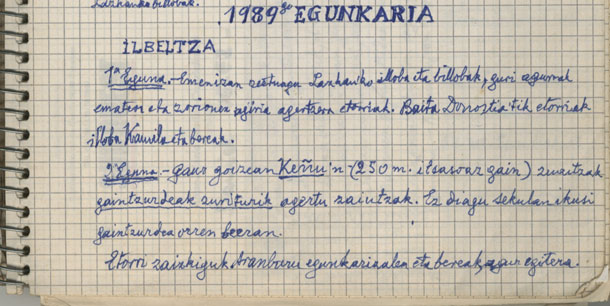 Lazkaoko billobak.
1989go EGUNKARIA
ILBELTZA
1a Eguna.- Emen izan zestuagu Lazkaoko illoba eta billobak, guri agurrak
ematen eta zorionez egina agertzera etorriak. Baita Donostiatik etorriak
illoba Kamela eta bereak.
2'Eguna.- Gaur goizean Keñu'n (250 m. itsasoaz gain) zuritzak
gaintzurdeak zuriturik agertu zaiutzak. Ez diagu sekulan ikusi
gaintzurdea orren beeran.
Etorri zaizkiguk Aranburu egunkarizalea eta bereak, agur egitera.